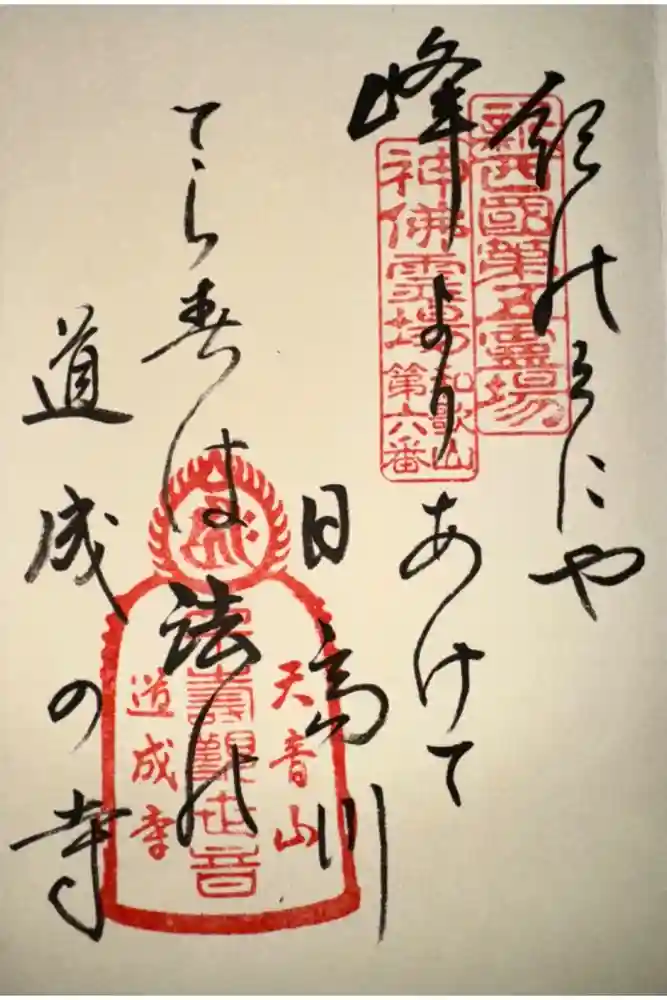 にや
峰よりあけて
日高川
てら春は法の
道成の寺
新西國第五霊場
神佛霊場
和歌山
第六番
天音山
壽觀世音
道成寺